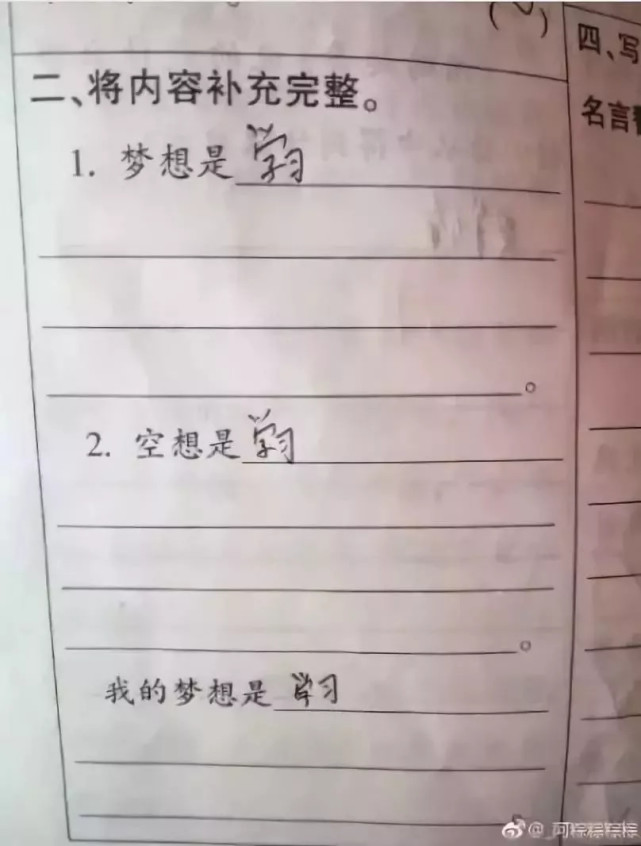 四、写
二、将内容补充完整。
名言
1. 梦想是学习
。
2. 空想是学习
。
我的梦想是学习
@_阿粽粽粽粽